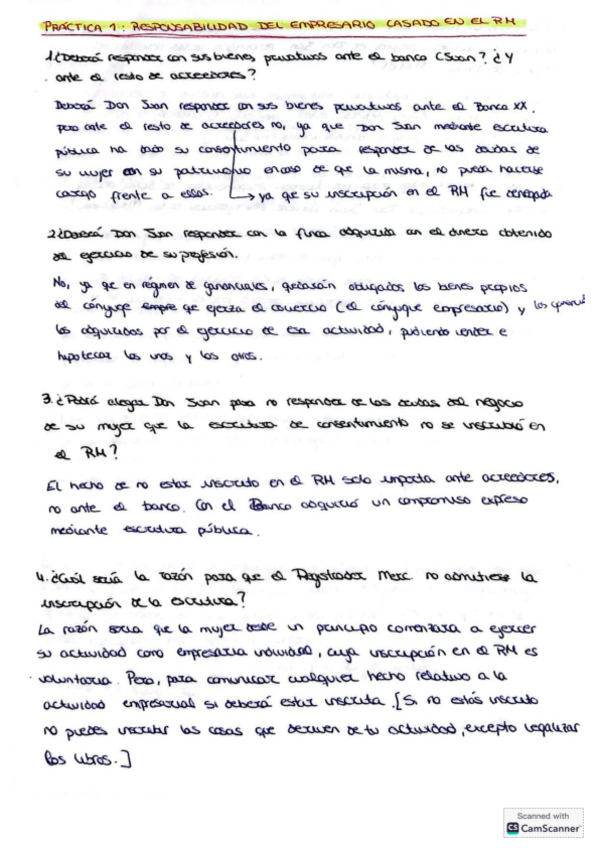 PRÁCTICA 1: RESPONSABILIDAD DEL EMPRESARIO CASADO EN EL RM
1. ¿Deberá responder con sus bienes privativos ante el banco CSuan? ¿Y
ante el resto de acreedores?
Deberá Don Juan responder con sus bienes privativos ante el Banco XX,
pero ante el resto de acreedores no, ya que Don Juan mediante escritura
pública ha dado su consentimiento para responder de las deudas de
su mujer con su patrimonio en caso de que la misma, no pueda hacerse
cargo frente a ellas. → ya que su inscripción en el RM fue denegada
2. ¿Deberá Don Juan responder con la finca adquirida con el dinero obtenido
del ejercicio de su profesión.
No, ya que en régimen de gananciales, quedarán obligados los bienes propios
del cónyuge que ejerza el comercio (el cónyuge empresario) y los
los adquiridos por el ejercicio de esa actividad, pudiendo vender e
hipotecar los unos y los otros.
3. ¿Podrá alegar Don Juan para no responder de las deudas del negocio
de su mujer que la escritura de consentimiento no se inscribió en
el RM?
El hecho de no estar inscrito en el RM solo importa ante acreedores,
no ante el banco. Con el Banco adquirió un compromiso expreso
mediante escritura pública.
4. ¿Cuál sería la razón para que el Registrador Merc. no admitiese la
inscripción de la escritura?
La razón sería que la mujer desde un principio comenzara a ejercer
su actividad como empresaria individual, cuya inscripción en el RM es
voluntaria. Pero, para comunicar cualquier hecho relativo a la
actividad empresarial si deberá estar inscrita. [Si no estás inscrito
no puedes inscribir las cosas que deriven de tu actividad, excepto legalizar
los libros.]
Scanned with
CS CamScanner